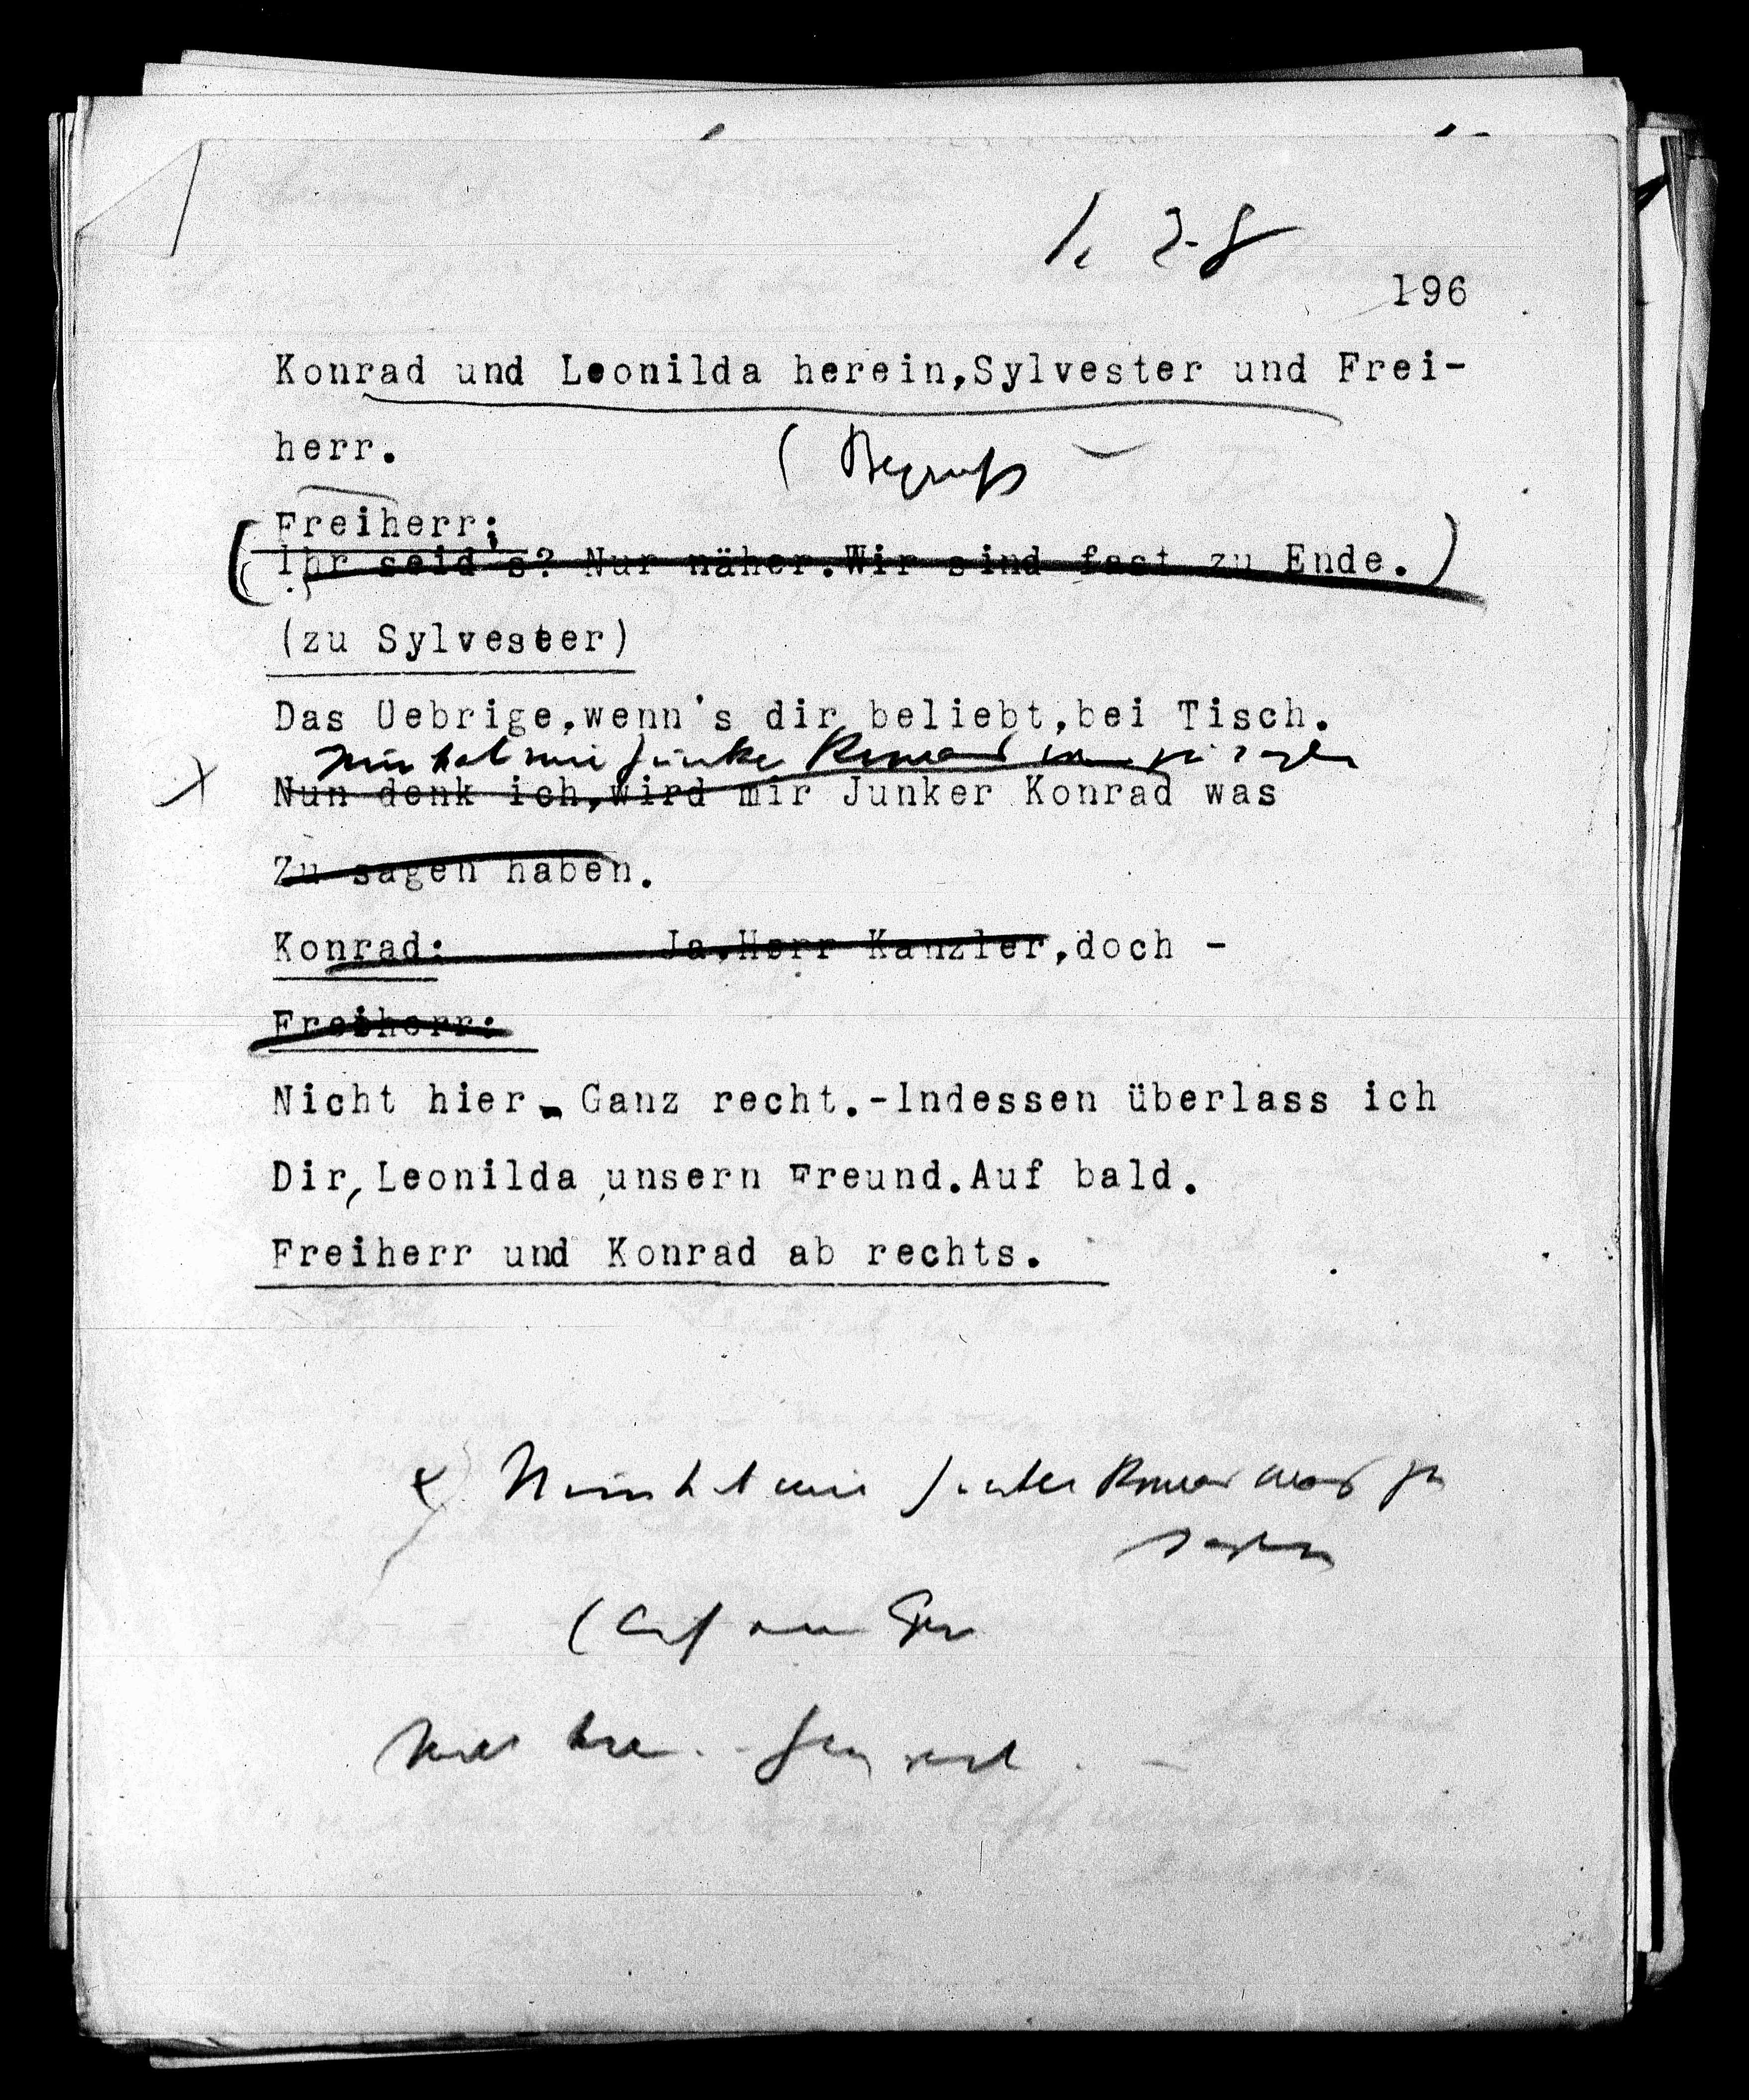 196
Konrad und Leonilda herein,Sylvester und Frei-
herr.
( Begrüß
Freiherr:
Ihr seid's? Nur näher.Wir sind fast zu Ende.)
(zu Sylvester)
Das Uebrige,wenn's dir beliebt,bei Tisch.
Nun hat mir Junker Konrad was zu sagen
Nun denk ich,wird mir Junker Konrad was
Zu sagen haben.
Konrad: Ja,Herr Kanzler,doch -
Freiherr:
Nicht hier - Ganz recht.-Indessen überlass ich
Dir, Leonilda,unsern Freund.Auf bald.
Freiherr und Konrad ab rechts.
Nun hat mir Junker Konrad was zu
sagen
(Auf
Nicht hier. - Ganz recht. -